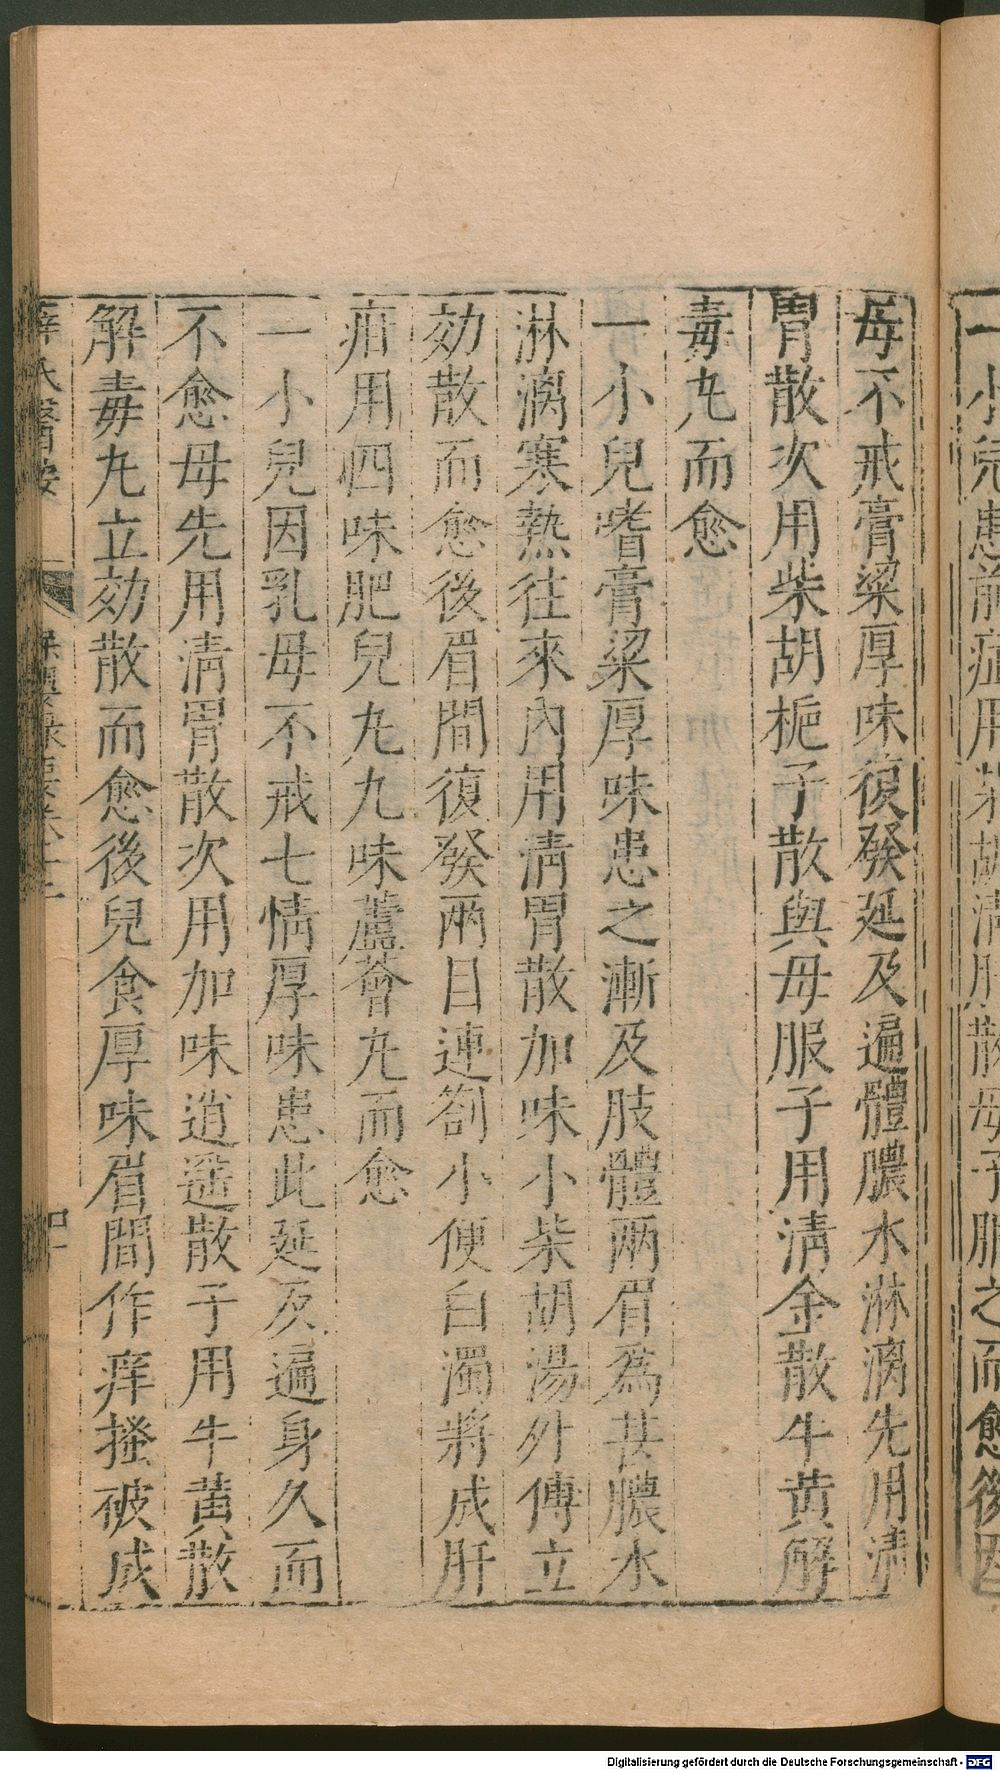 一小兒患前症用柴胡清肝散母子服之而愈後因
母不戒膏粱厚味復發延及遍體膿水淋漓先用清
胃散次用柴胡梔子散與母服子用清金散牛黃解
毒丸而愈
一小兒嗜膏粱厚味患之漸及肢體兩眉為甚膿水
淋漓寒熱往來內用清胃散加味小柴胡湯外傅立
効散而愈後眉間復發兩目連劄小便白濁將成肝
疳用四味肥兒丸九味蘆薈丸而愈
一小兒因乳母不戒七情厚味患此延及遍身久而
不愈母先用清胃散次用加味逍遙散子用牛黃散
解毒丸立効散而愈後兒食厚味眉間作痒搔破成
薛氏醫按
Digitalisierung gefördert durch die Deutsche Forschungsgemeinschaft - DFG